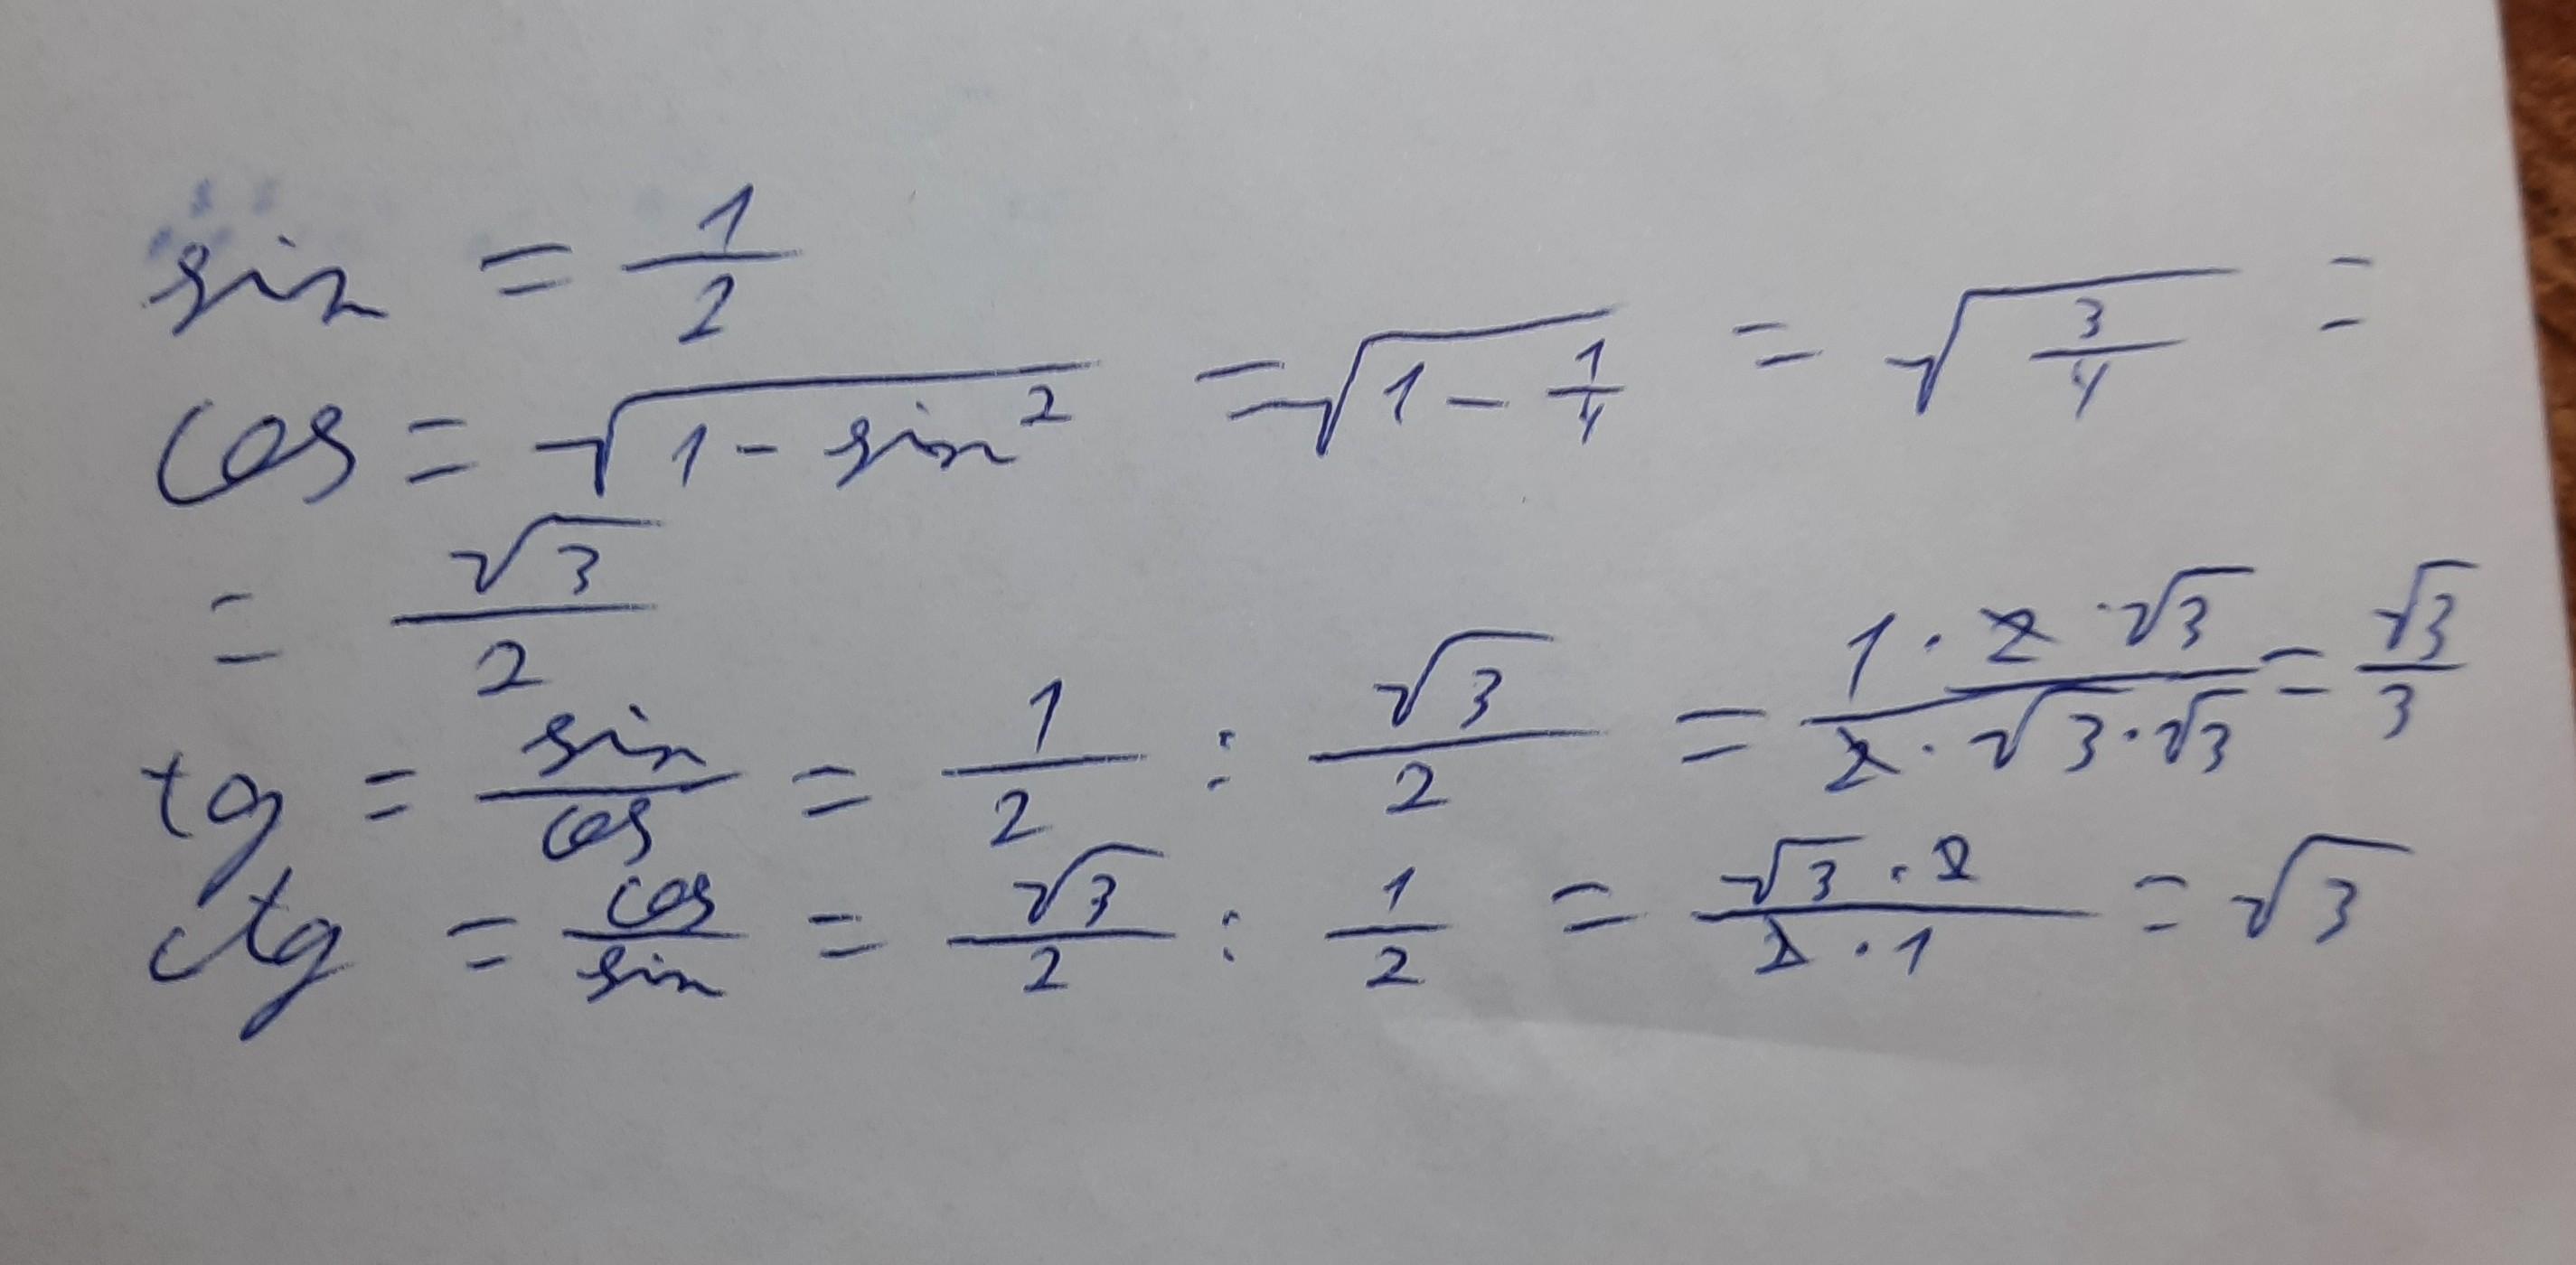 sin = 1/2
cos = √(1 - sin²) = √(1 - 1/4) = √(3/4) =
= √3/2
tg = sin/cos = 1/2 : √3/2 = (1 · 2 · √3)/(2 · √3 · √3) = √3/3
ctg = cos/sin = √3/2 : 1/2 = (√3 · 2)/(2 · 1) = √3